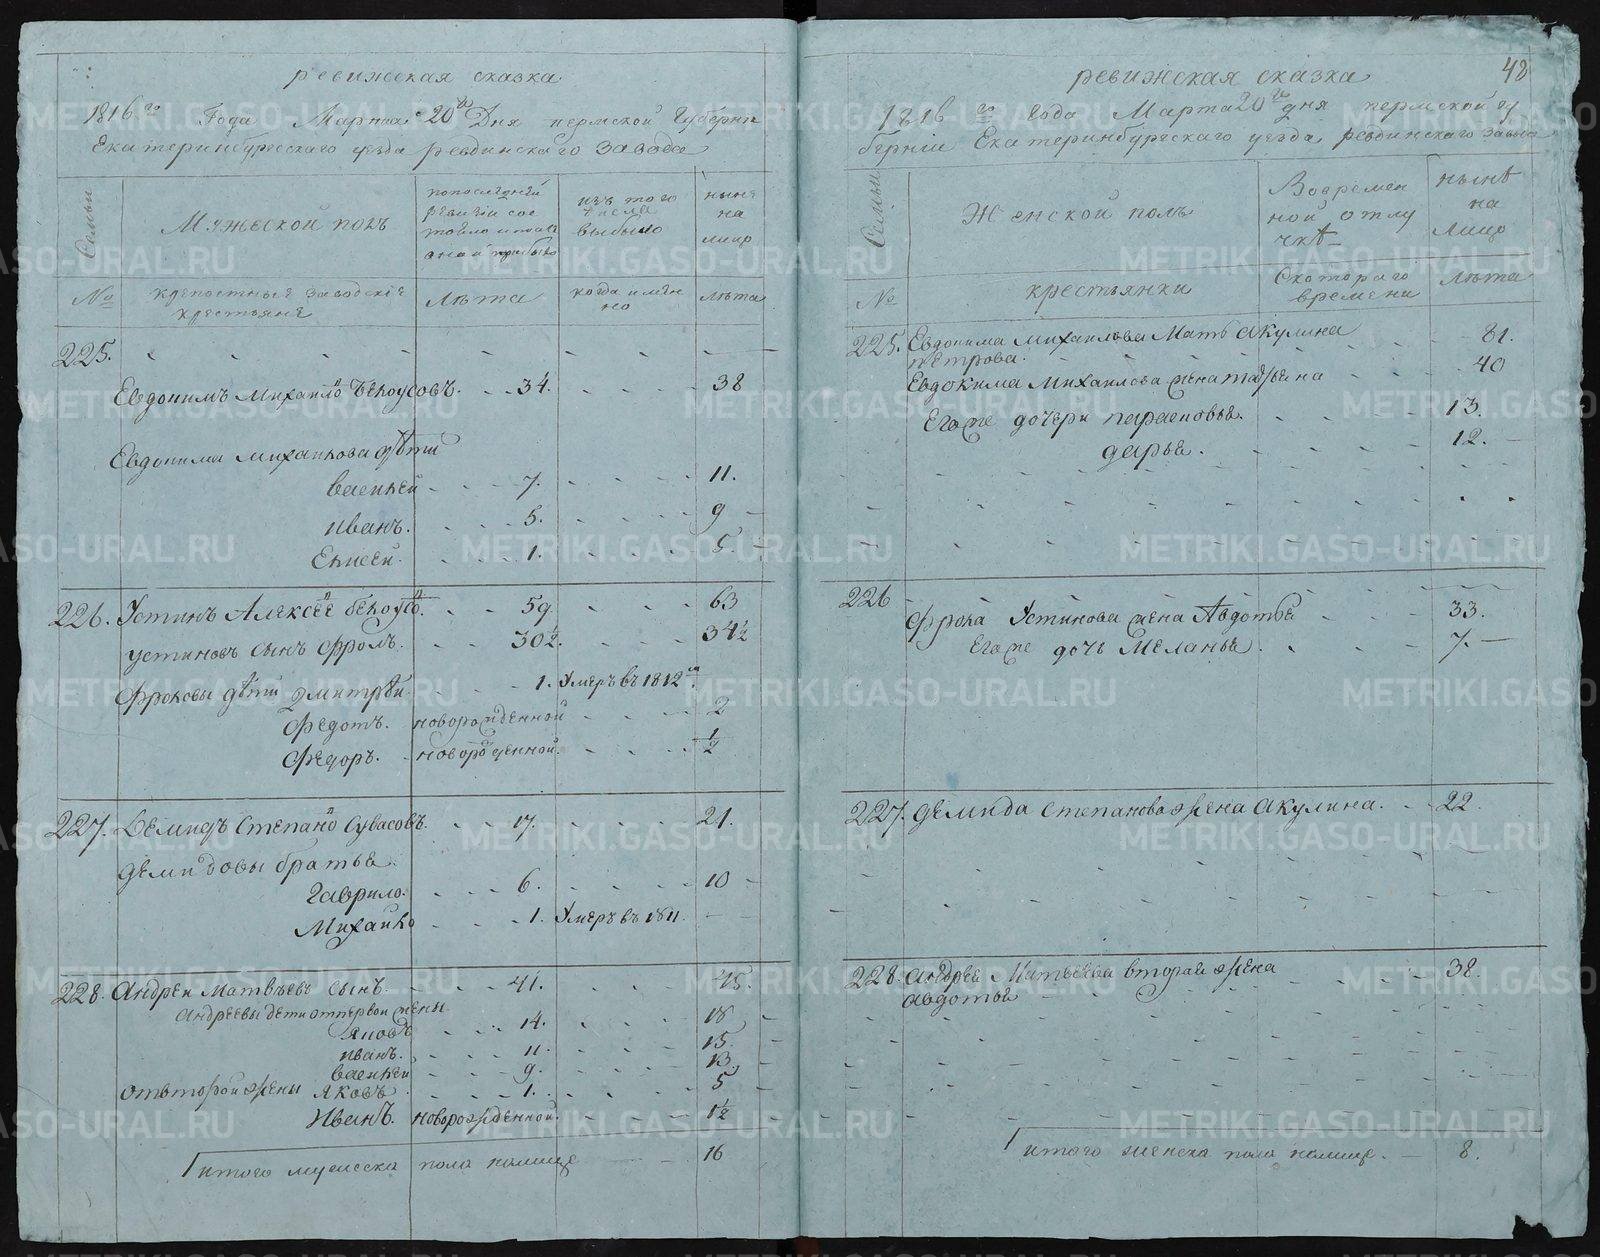 ревижская сказка
1816 го Года Марта 20 го Дня пермской Губернии
Екатеринбургскаго уезда ревдинскаго завода
Семьи
Мужеской полъ
по последней ревизии сос тояло и после оной прибыло
изъ того числа выбыло
ныне на лицо
№
крепостные заводские крестьяне
Лѣта
когда имян но
лѣта
225.
Евдокимъ Михаило Белоусовъ. 34. 38
Евдокима михаилова дѣти
Василей 7. 11.
иванъ. 5. 9
Елисей. 1. 5.
226. Устинъ Алексѣе белоусо. 59. 63
устиновъ сынъ фролъ. 30½. 34½
Фроловы дѣти дмитрѣи 1. Умеръ въ 1812 м
Федотъ. новорожденной 2
Федоръ. новорожденной. ½
227. Демидъ степано Сувасовъ. 17. 21.
демидовы братье
Гаврило. 6. 10
Михайло 1. Умеръ въ 1811.
228. Андреи Матвѣевъ сынъ. 41. 45.
андреевы дети отпервой жены
Яковъ 14. 18
иванъ. 11. 15.
василей 9. 13
отвторой жены яковъ 1. 5
Иванъ. новорожденной. 1½
итого мужеска пола налице 16
48
ревижская сказка
1816 го Года Марта 20 го дня пермской гу
бернии Екатеринбургскаго уезда ревдинскаго завода
Семьи
Женской полъ
Вовремен ной отлу чкѣ
нынѣ на лицо
№
крестьянки
Скотораго времени
Лѣта
225. Евдокима михаилова Мать акулина 81.
петрова.
Евдокима михаилова жена татьяна 40
Егоже дочери парасковья. 13.
дарья. 12.
226
Фрола Устинова жена Авдотья 33.
Егоже дочь Меланья. 7.
227. демида степанова жена акулина. 22.
228. андрея Матвѣева вторая жена 38.
авдотья
итого женска пола налице. 8.
METRIKI.GASO-URAL.RU